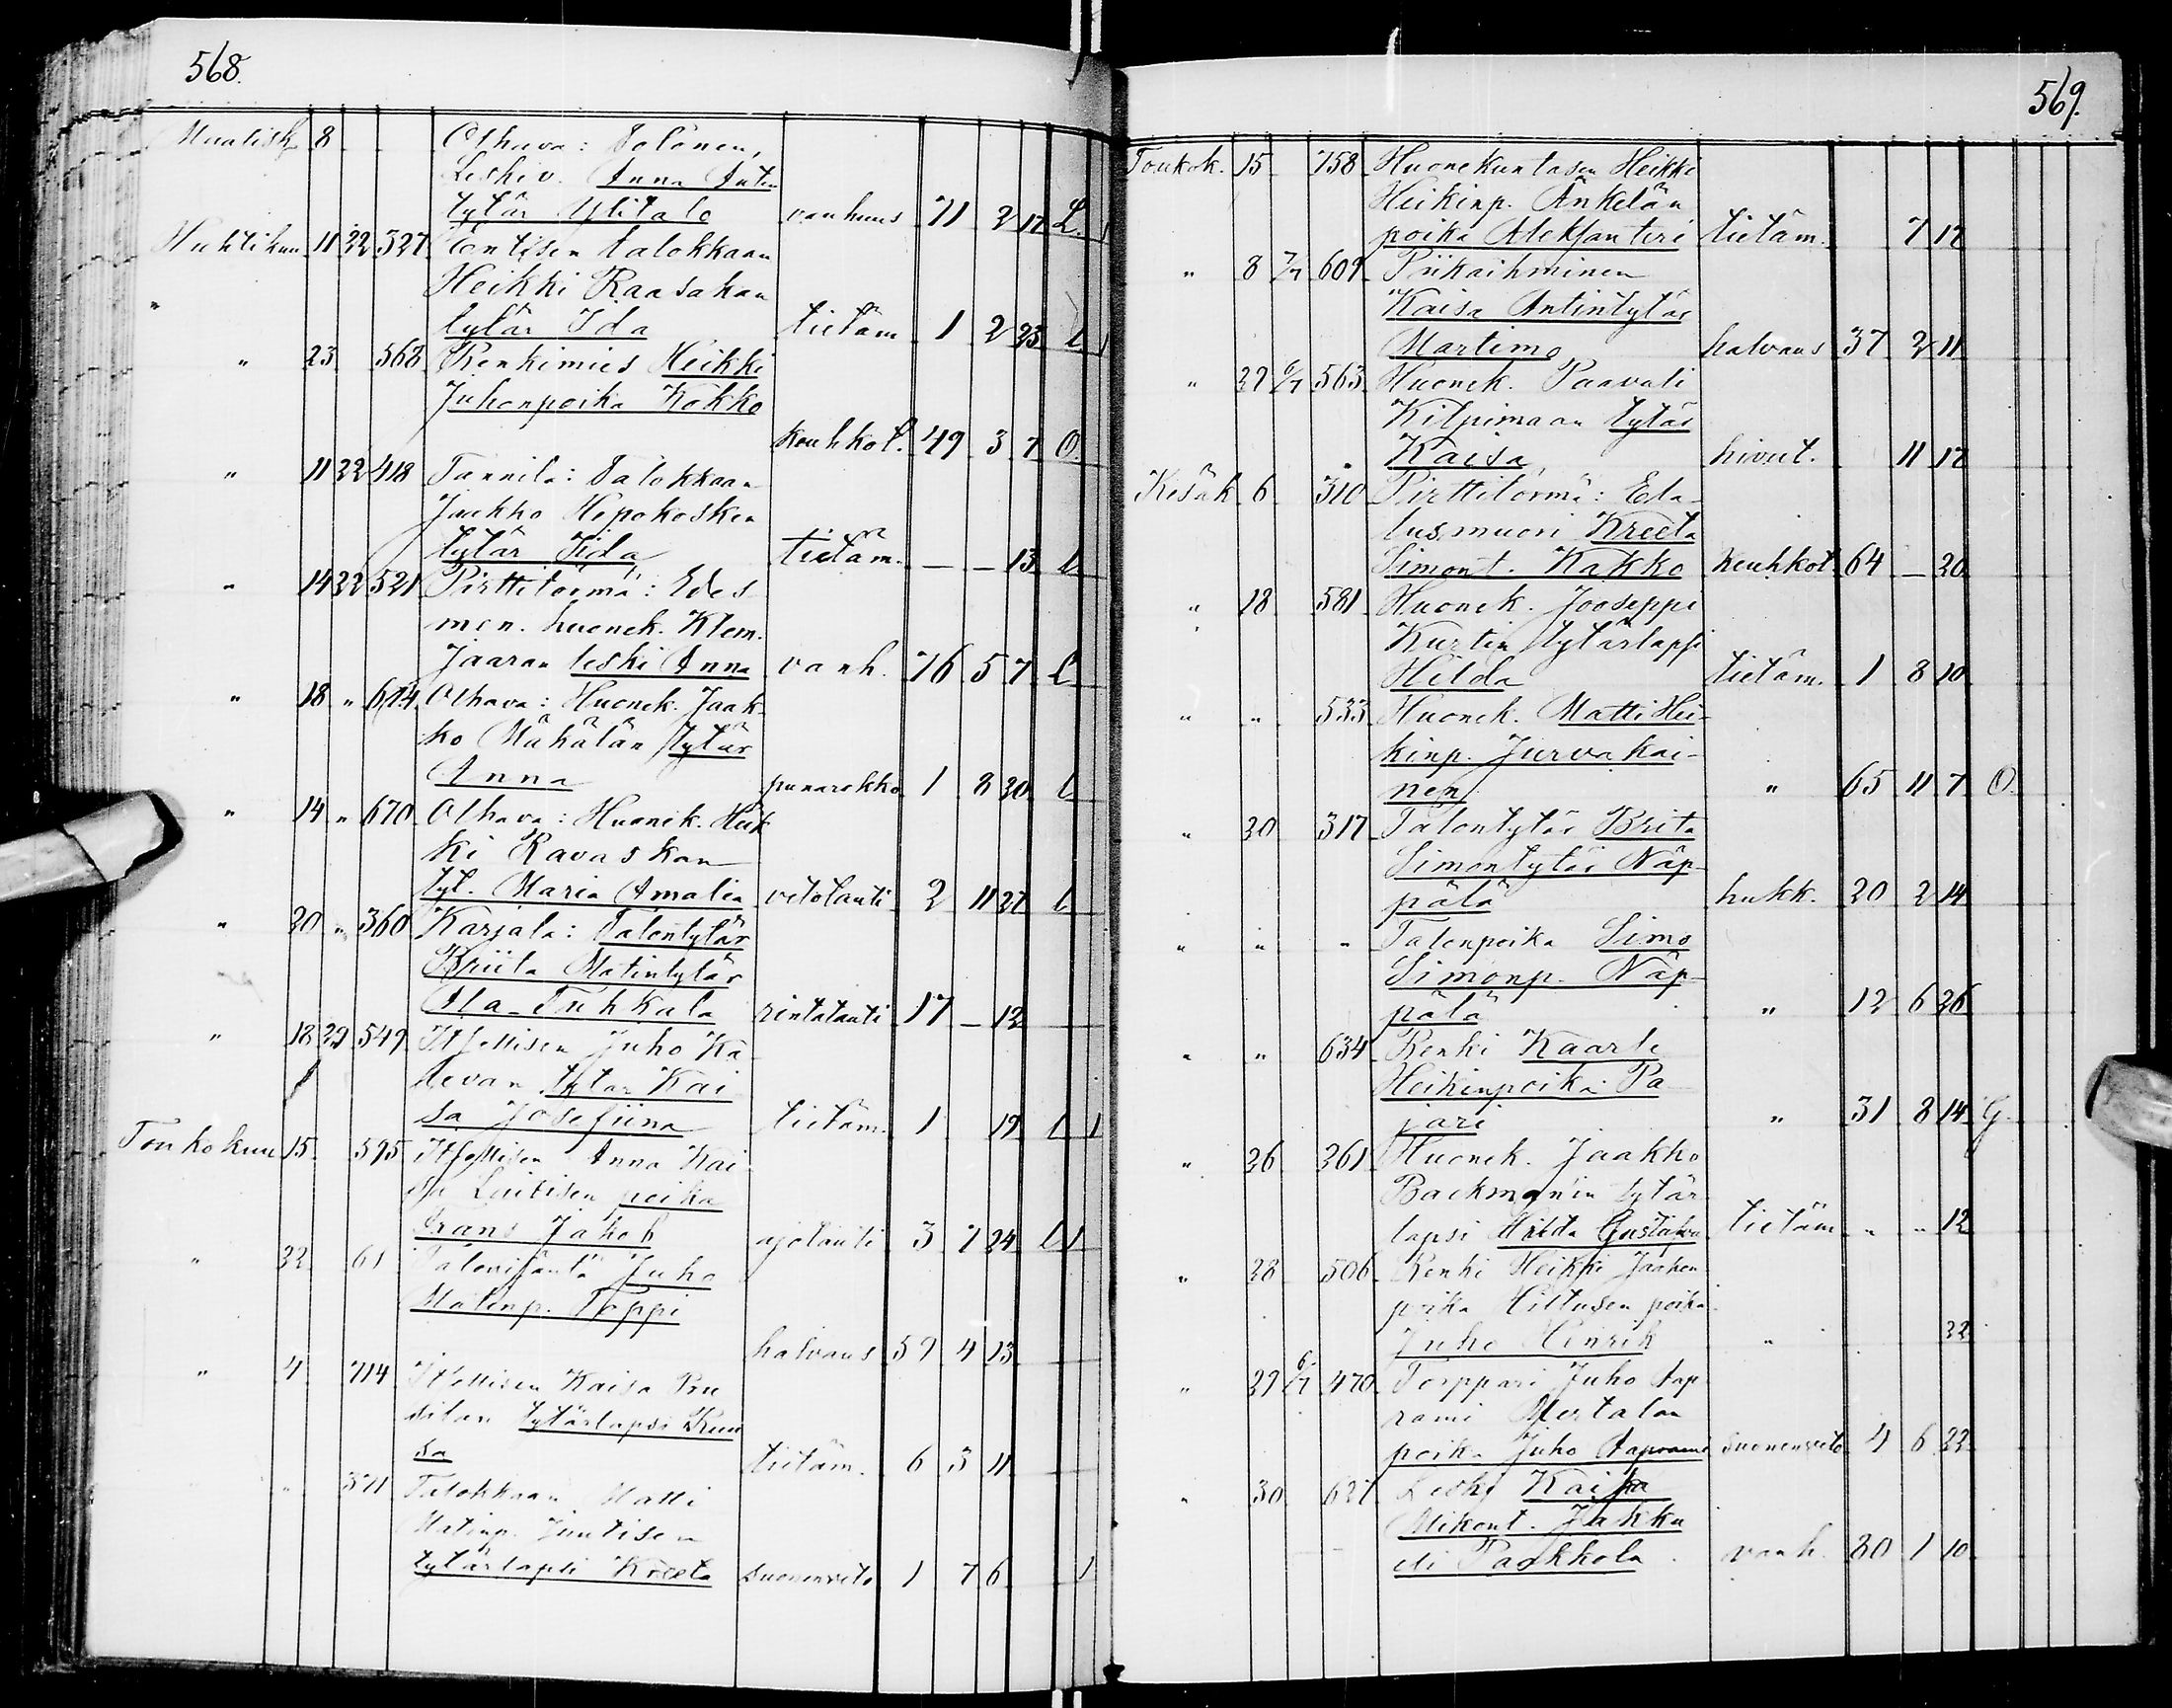 568.
Maalisk 8 Olhava: Talonen,
Leskiv. Anna Antin
tytär Ylitalo vanhuus 71 2 17 L.
Huhtikuu 11 22 327 talokkaan
Heikki Raasakan
" tytär Ida tietäm 1 2 23 l 1
" 23 568 Renkimies Heikki
Juhonpoika Kokko
keuhkot. 49 3 7 O.
" 11 22 418 Tannila: Talokkaan
Jaakko Hepokosken
tytär Iida tietäm. — — 13 l
" 14 22 521 Pirttitörmä: Edes
men. huonek. Klem.
Jaaran leski Anna vanh. 76 5 7 l
" 18 " 674 Olhava: Huonek. Jaak-
ko Mähälän tytär
Anna punarokko 1 8 30 l
" 14 " 670 Olhava: Huonek. Heik
ki Ravaskan
tyt. Maria Amalia vetotauti 2 11 27 l
" 20 " 360 Karjala: Talontytär
Briita Matintytär
Ala-Tuhkala rintatauti 17 — 12
" 18 29 549 Itsellisen Juho Ka
levan tytar Kai
sa Josefiina tietäm. 1 19 l 1
Toukokuu 15 595 Itsellisen Anna Kai
sa poika
Frans Jakob ajotauti 3 7 24 l 1
" 22 61 Talonisäntä Juho
Matinp. Toppi
halvaus 59 4 13
" 4 714 Itsellisen Kaisa Pru
silan tytärlapsi
sa tietäm. 6 3 11
" 371 Talokkaan Matti
Matinp. Juutisen
tytärlapsi Kreeta suonenveto 1 7 6 1
569.
Toukok. 15 758 Huonekuntasen Heikki
Heikinp. Änkelän
poika Aleksanteri tietäm. 7 17
" 8 7/7 609 Piikaihminen
Kaisa Antintytär
Martimo halvaus 37 2 11
" 29 6/7 563 Huonek. Paavali
Kilpimaan tytär
Kaisa hivut. 11 17
Kesäk 6 310 Pirttitörmä: Ela-
tusmuori Kreeta
Simont. Kakko Keuhkot 64 — 20
" 18 581 Huonek. Jooseppi
Kurtin tytärlapsi
Hilda tietäm. 1 8 10
" " 533 Huonek. Matti Hei-
kinp. Jurvakai-
nen " 65 11 7 O.
" 20 317 Talontytär Brita
Simontytär Näp-
pälä hukk. 20 2 14
" " " Talonpoika Simo
Simonp. Näp-
pälä " 12 6 26
" " 634 Renki Kaarle
Heikinpoika Pa
jari " 31 8 14 G.
" 26 261 Huonek. Jaakko
Backman'in tytär
lapsi Hilda Gustava tietäm " " 12
" 28 506 Renki Heikki Jaakon
poika Hiltusen poika
Juho Henrik " 22
" 29 6/7 470 Torppari Juho Aap
rami Mertalan
poika Juho Aaprami suonenveto 4 6 22
" 30 627 Leski Kaisa
Mikont. Jakku
eli Paakkola. vanh. 80 1 10